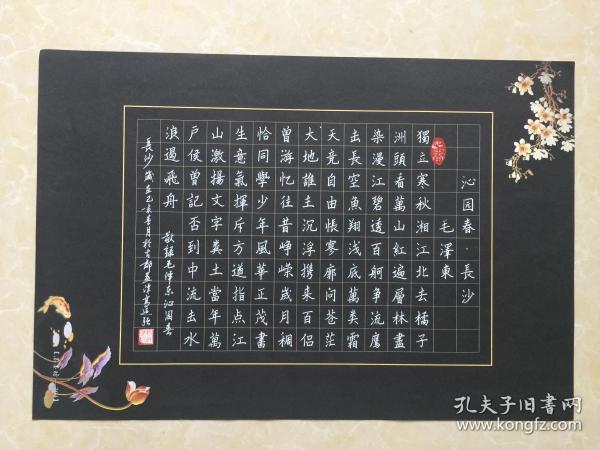 沁园春·長沙
毛澤東
獨立寒秋湘江北去橘子
洲頭看萬山紅遍層林盡
染漫江碧透百舸争流鷹
击長空魚翔浅底萬类霜
天竞自由悵寥廓问苍茫
大地誰主沉浮携来百侣
曾游忆往昔峥嵘歲月稠
恰同學少年風華正茂書
生意氣揮斥方遒指点江
山激揚文字粪土當年萬
户侯曾記否到中流击水
浪遏飛舟 敬録毛泽东沁园春
長沙 歲在己亥
孔夫子旧書网
book.kongfz.com